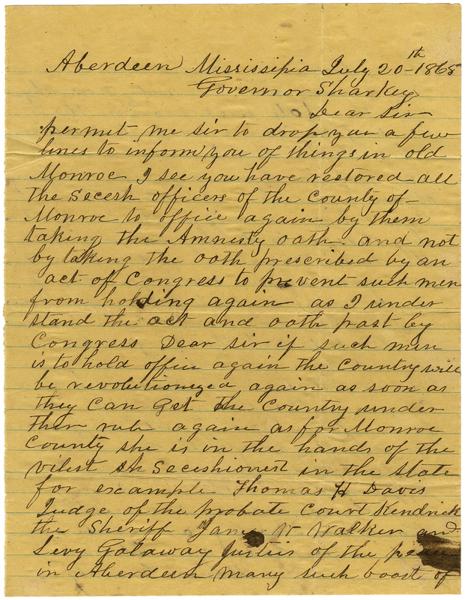 Aberdeen Mississipia July 20th 1865
Governor Sharkey
Dear Sir
permit me sir to drop you a few
lines to inform you of things in old
Monroe I see you have restored all
the Secesh officers of the County of
Monroe to office again by them
taking the Amnesty oath and not
by taking the oath prescribed by an
act of Congress to prevent such men
from holding again as I under
stand the act and oath past by
Congress Dear sir if such men
is to hold office again the Country will
be revolutionized again as soon as
they can get the Country under
ther rule again as for Monroe
County she is in the hands of the
vilest Secessionest in the State
for example Thomas H Davis
Judge of the probate Court Kendrick
the Sheriff W Walker and
Levy Galaway of the
in Aberdeen Many such boast of